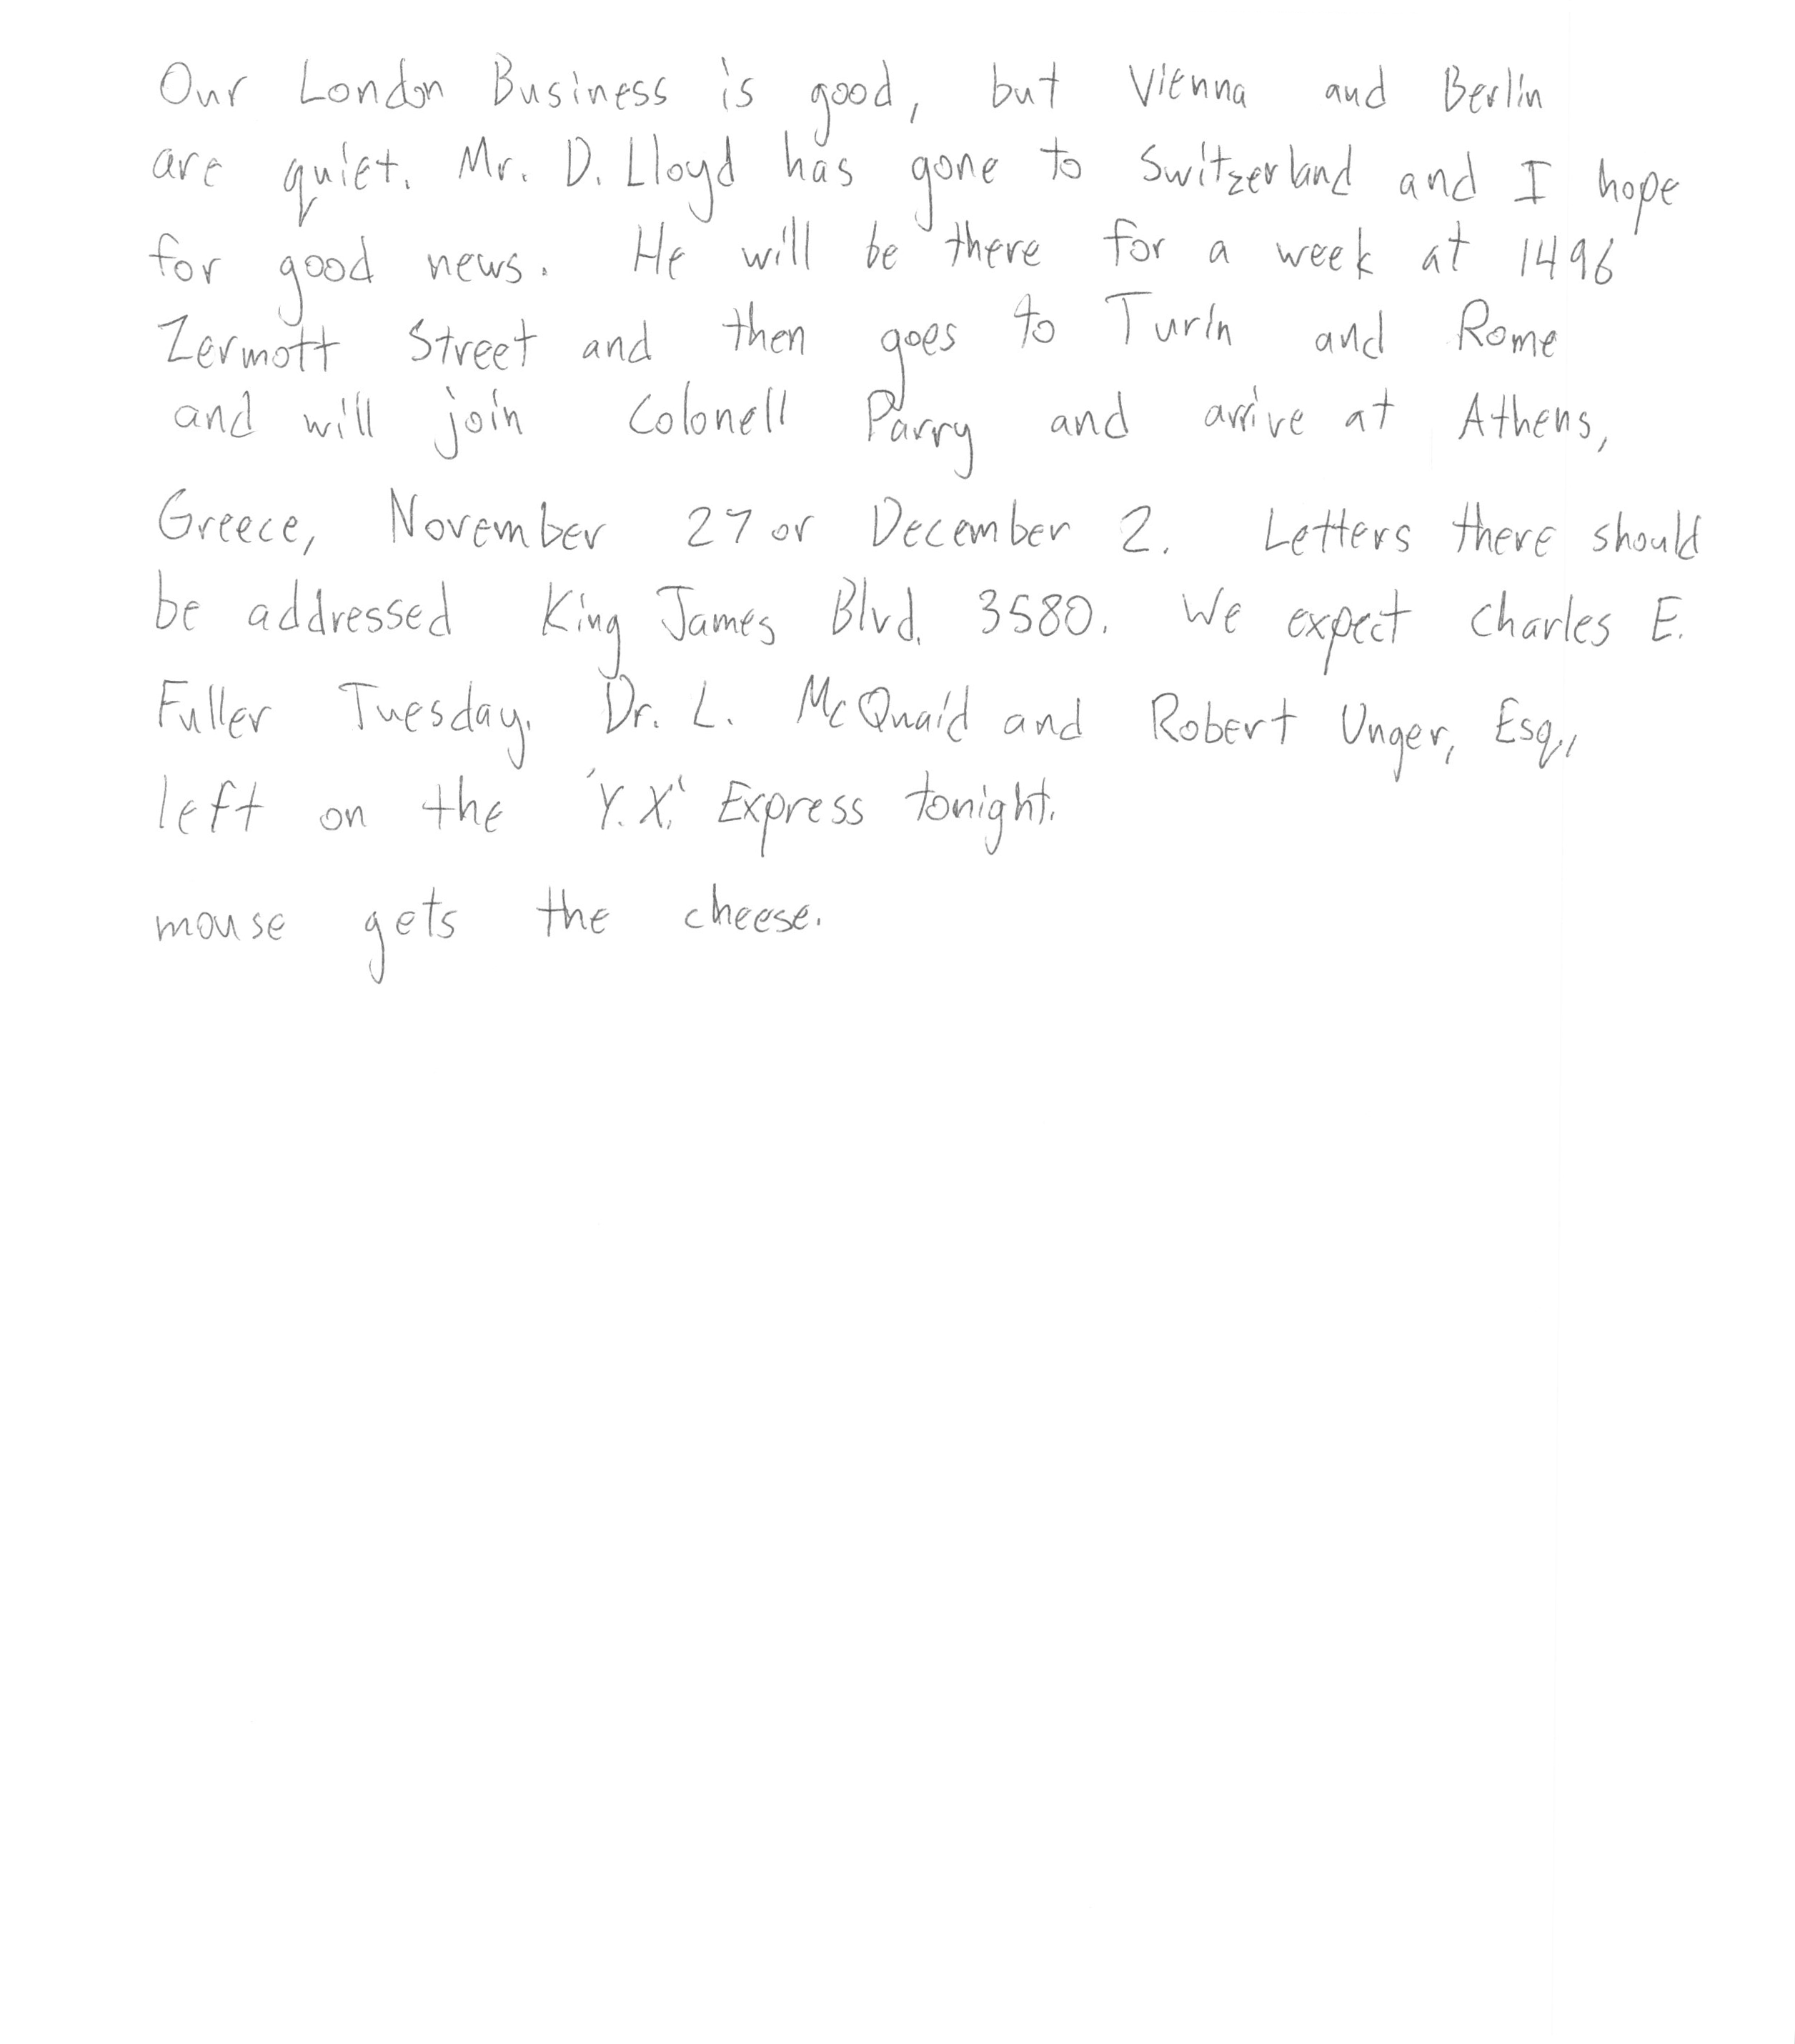 Our London Business is good, but Vienna and Berlin
are quiet. Mr. D. Lloyd has gone to Switzerland and I hope
for good news. He will be there for a week at 1496
Zermott Street and then goes to Turin and Rome
and will join Colonell Parry and arrive at Athens,
Greece, November 27 or December 2. Letters there should
be addressed King James Blvd. 3580. We expect Charles E.
Fuller Tuesday. Dr. L. McQuaid and Robert Unger, Esq.,
left on the 'Y.X.' Express tonight.
mouse gets the cheese.